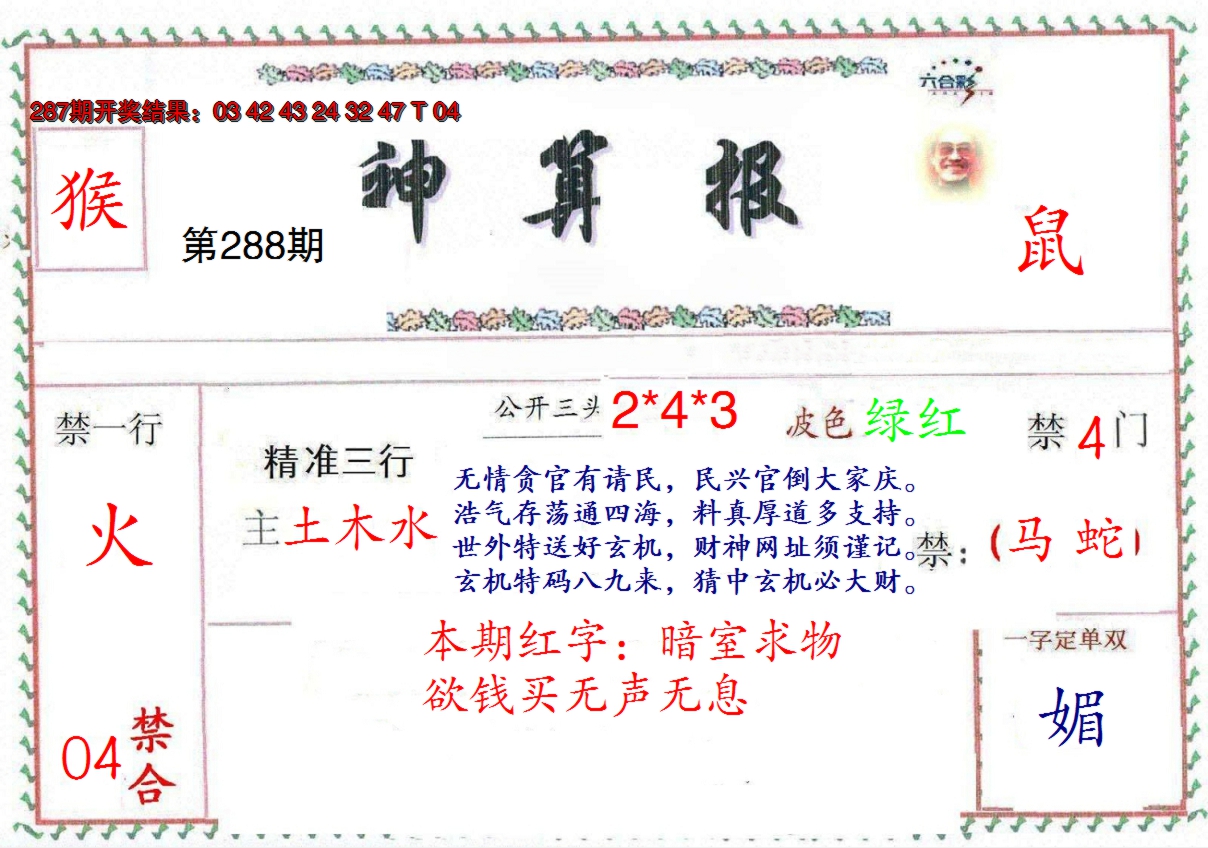 六合彩
287期开奖结果：03 42 43 24 32 47 T 04
神算报
猴
第288期
鼠
禁一行
火
04禁合
精准三行
主土木水
公开三头 2*4*3
波色 绿红
无情贪官有请民，民兴官倒大家庆。
浩气存荡通四海，料真厚道多支持。
世外特送好玄机，财神网址须谨记。
玄机特码八九来，猜中玄机必大财。
本期红字：暗室求物
欲钱买无声无息
禁4门
禁：（马 蛇）
一字定单双
媚